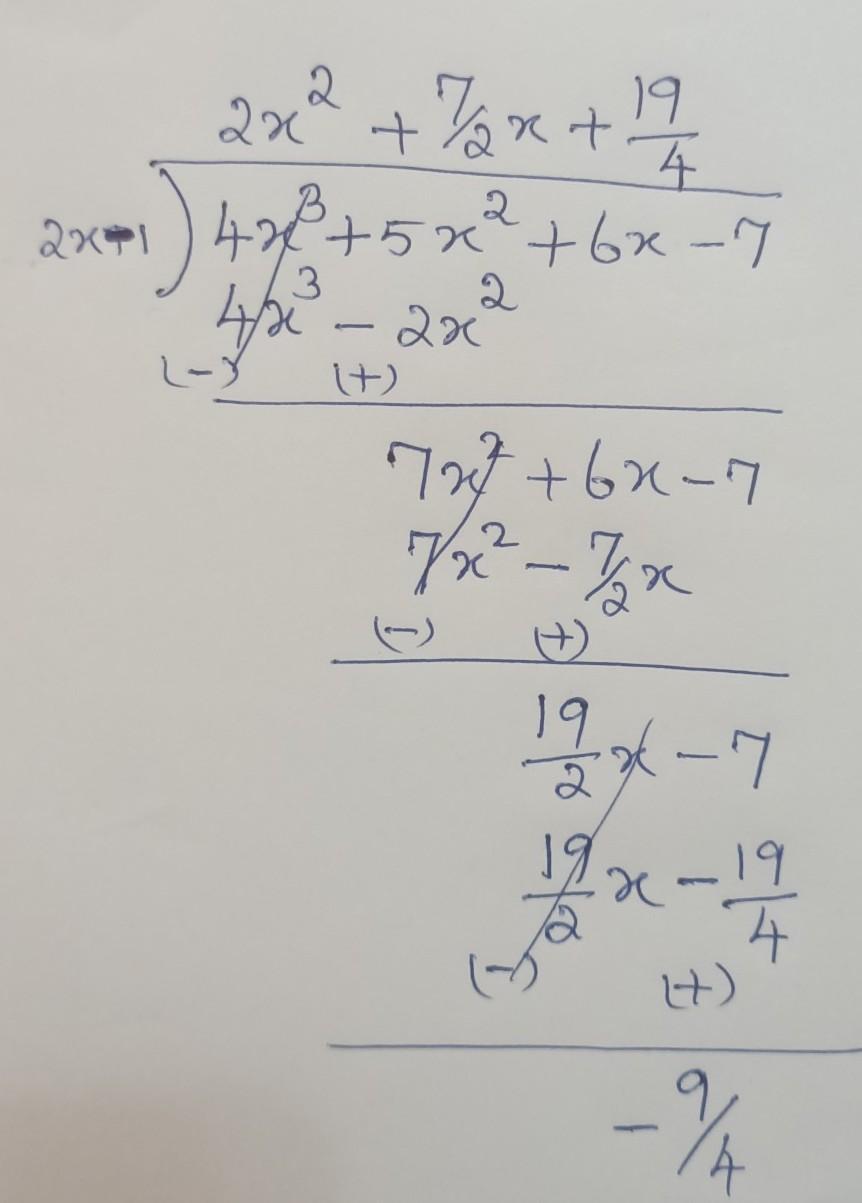 2x² + 7/2 x + 19/4
2x-1 ) 4x³ + 5x² + 6x - 7
4x³ - 2x²
(-) (+)
7x² + 6x - 7
7x² - 7/2 x
(-) (+)
19/2 x - 7
19/2 x - 19/4
(-) (+)
- 9/4